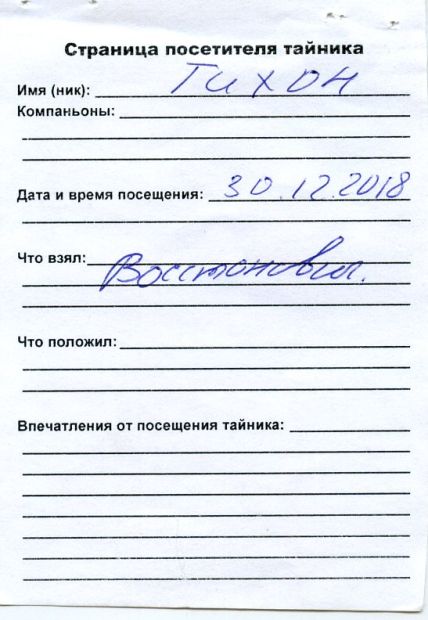 Страница посетителя тайника
Имя (ник): Тихон
Компаньоны:
Дата и время посещения: 30.12.2018
Что взял:
Восстановил.
Что положил:
Впечатления от посещения тайника: